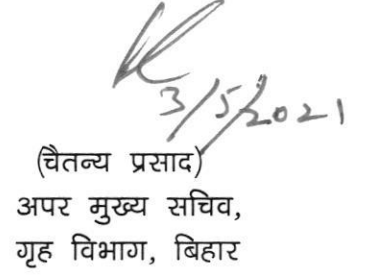 3/5/2021
(चैतन्य प्रसाद)
अपर मुख्य सचिव,
गृह विभाग, बिहार